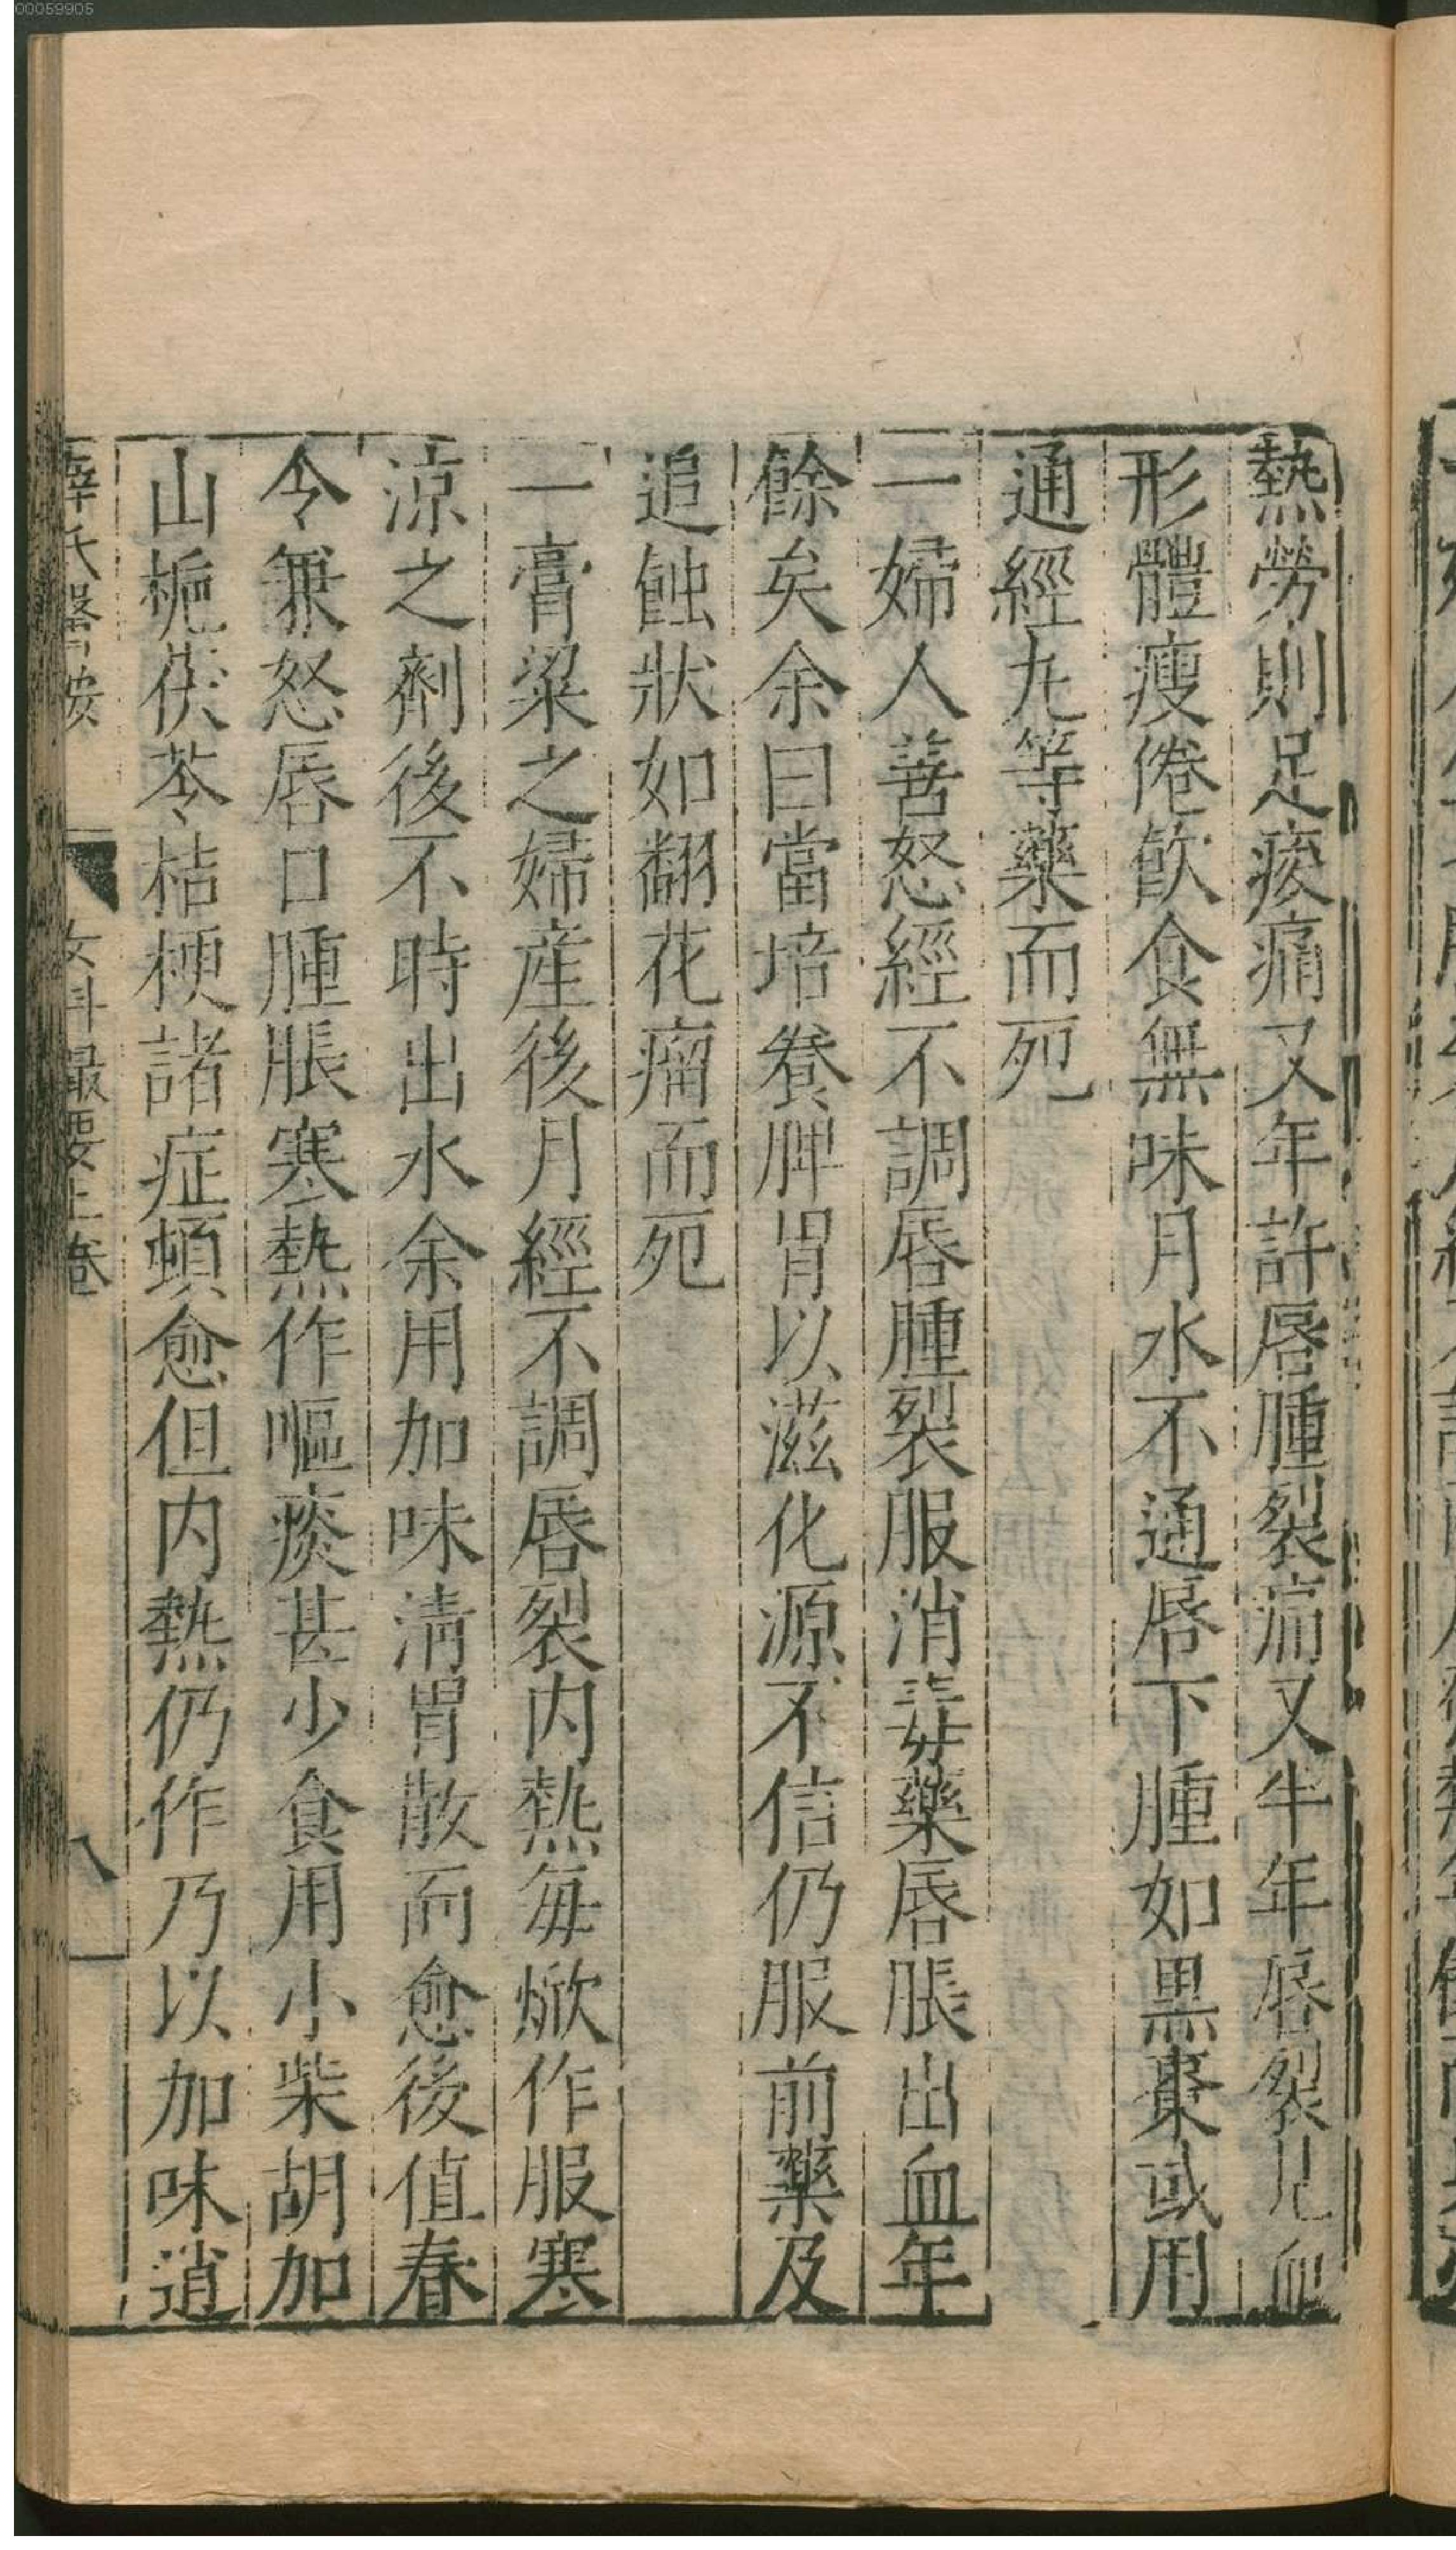 00059905
熱勞則足痠痛又年許唇腫裂痛又半年唇裂見血
形體瘦倦飲食無味月水不通唇下腫如黒棗或用
通經丸等藥而死
一婦人善怒經不調唇腫裂服消毒藥唇脹出血年
餘矣余曰當培養脾胃以滋化源不信仍服前藥及
追蝕狀如翻花瘤而死
一膏粱之婦産後月經不調唇裂内熱每焮作服寒
涼之劑後不時出水余用加味清胃散而愈後值春
令兼怒唇口腫脹寒熱作嘔痰甚少食用小柴胡加
山梔茯苓桔梗諸症頓愈但内熱仍作乃以加味逍
薛氏醫按 女科撮要上卷 八